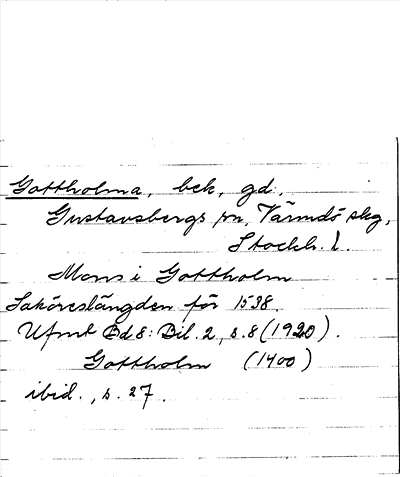 Gottholma, bek, gd.
Gustavsbergs sn, Värmdö skg,
Stockh. l.
Mons i Gottholm
Saköreslängden för 1538.
Ufmt Bd 8: Bil. 2, s. 8 (1920).
Gottholm (1400)
ibid., s. 27.